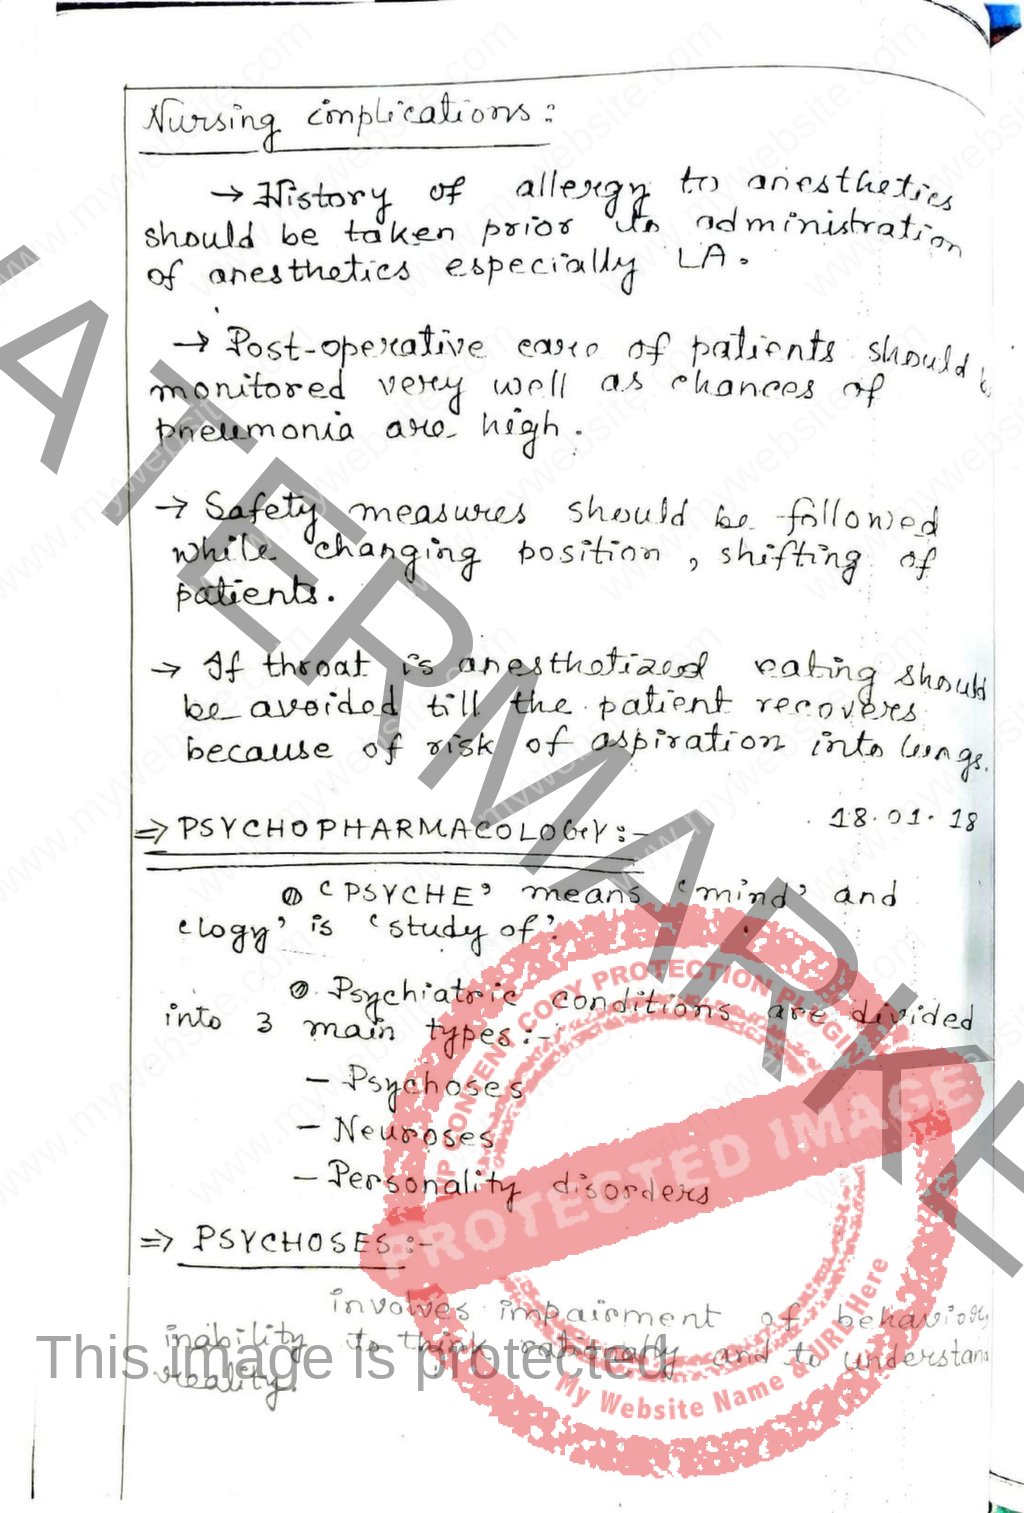 Nursing implications:
→ History of allergy to anesthetics
should be taken prior to administration
of anesthetics especially LA.
→ Post-operative care of patients should
monitored very well as chances of
pneumonia are high.
→ Safety measures should be followed
while changing position, shifting of
patients.
→ If throat is anesthetized eating should
be avoided till the patient recovers
because of risk of aspiration into lungs.
18.01.18
⇒ PSYCHOPHARMACOLOGY:-
'PSYCHE' means 'mind' and
'logy' is 'study of'.
Psychiatric conditions are divided
into 3 main types:-
- Psychoses
- Neuroses
- Personality disorders
⇒ PSYCHOSES:-
involves impairment of behaviour
inability to think rationally and to understand
reality.
WATERMARKED
This image is protected
WP CONTENT COPY PROTECTION PLUGIN
PROTECTED IMAGE
My Website Name & URL Here
www.mywebsite.com